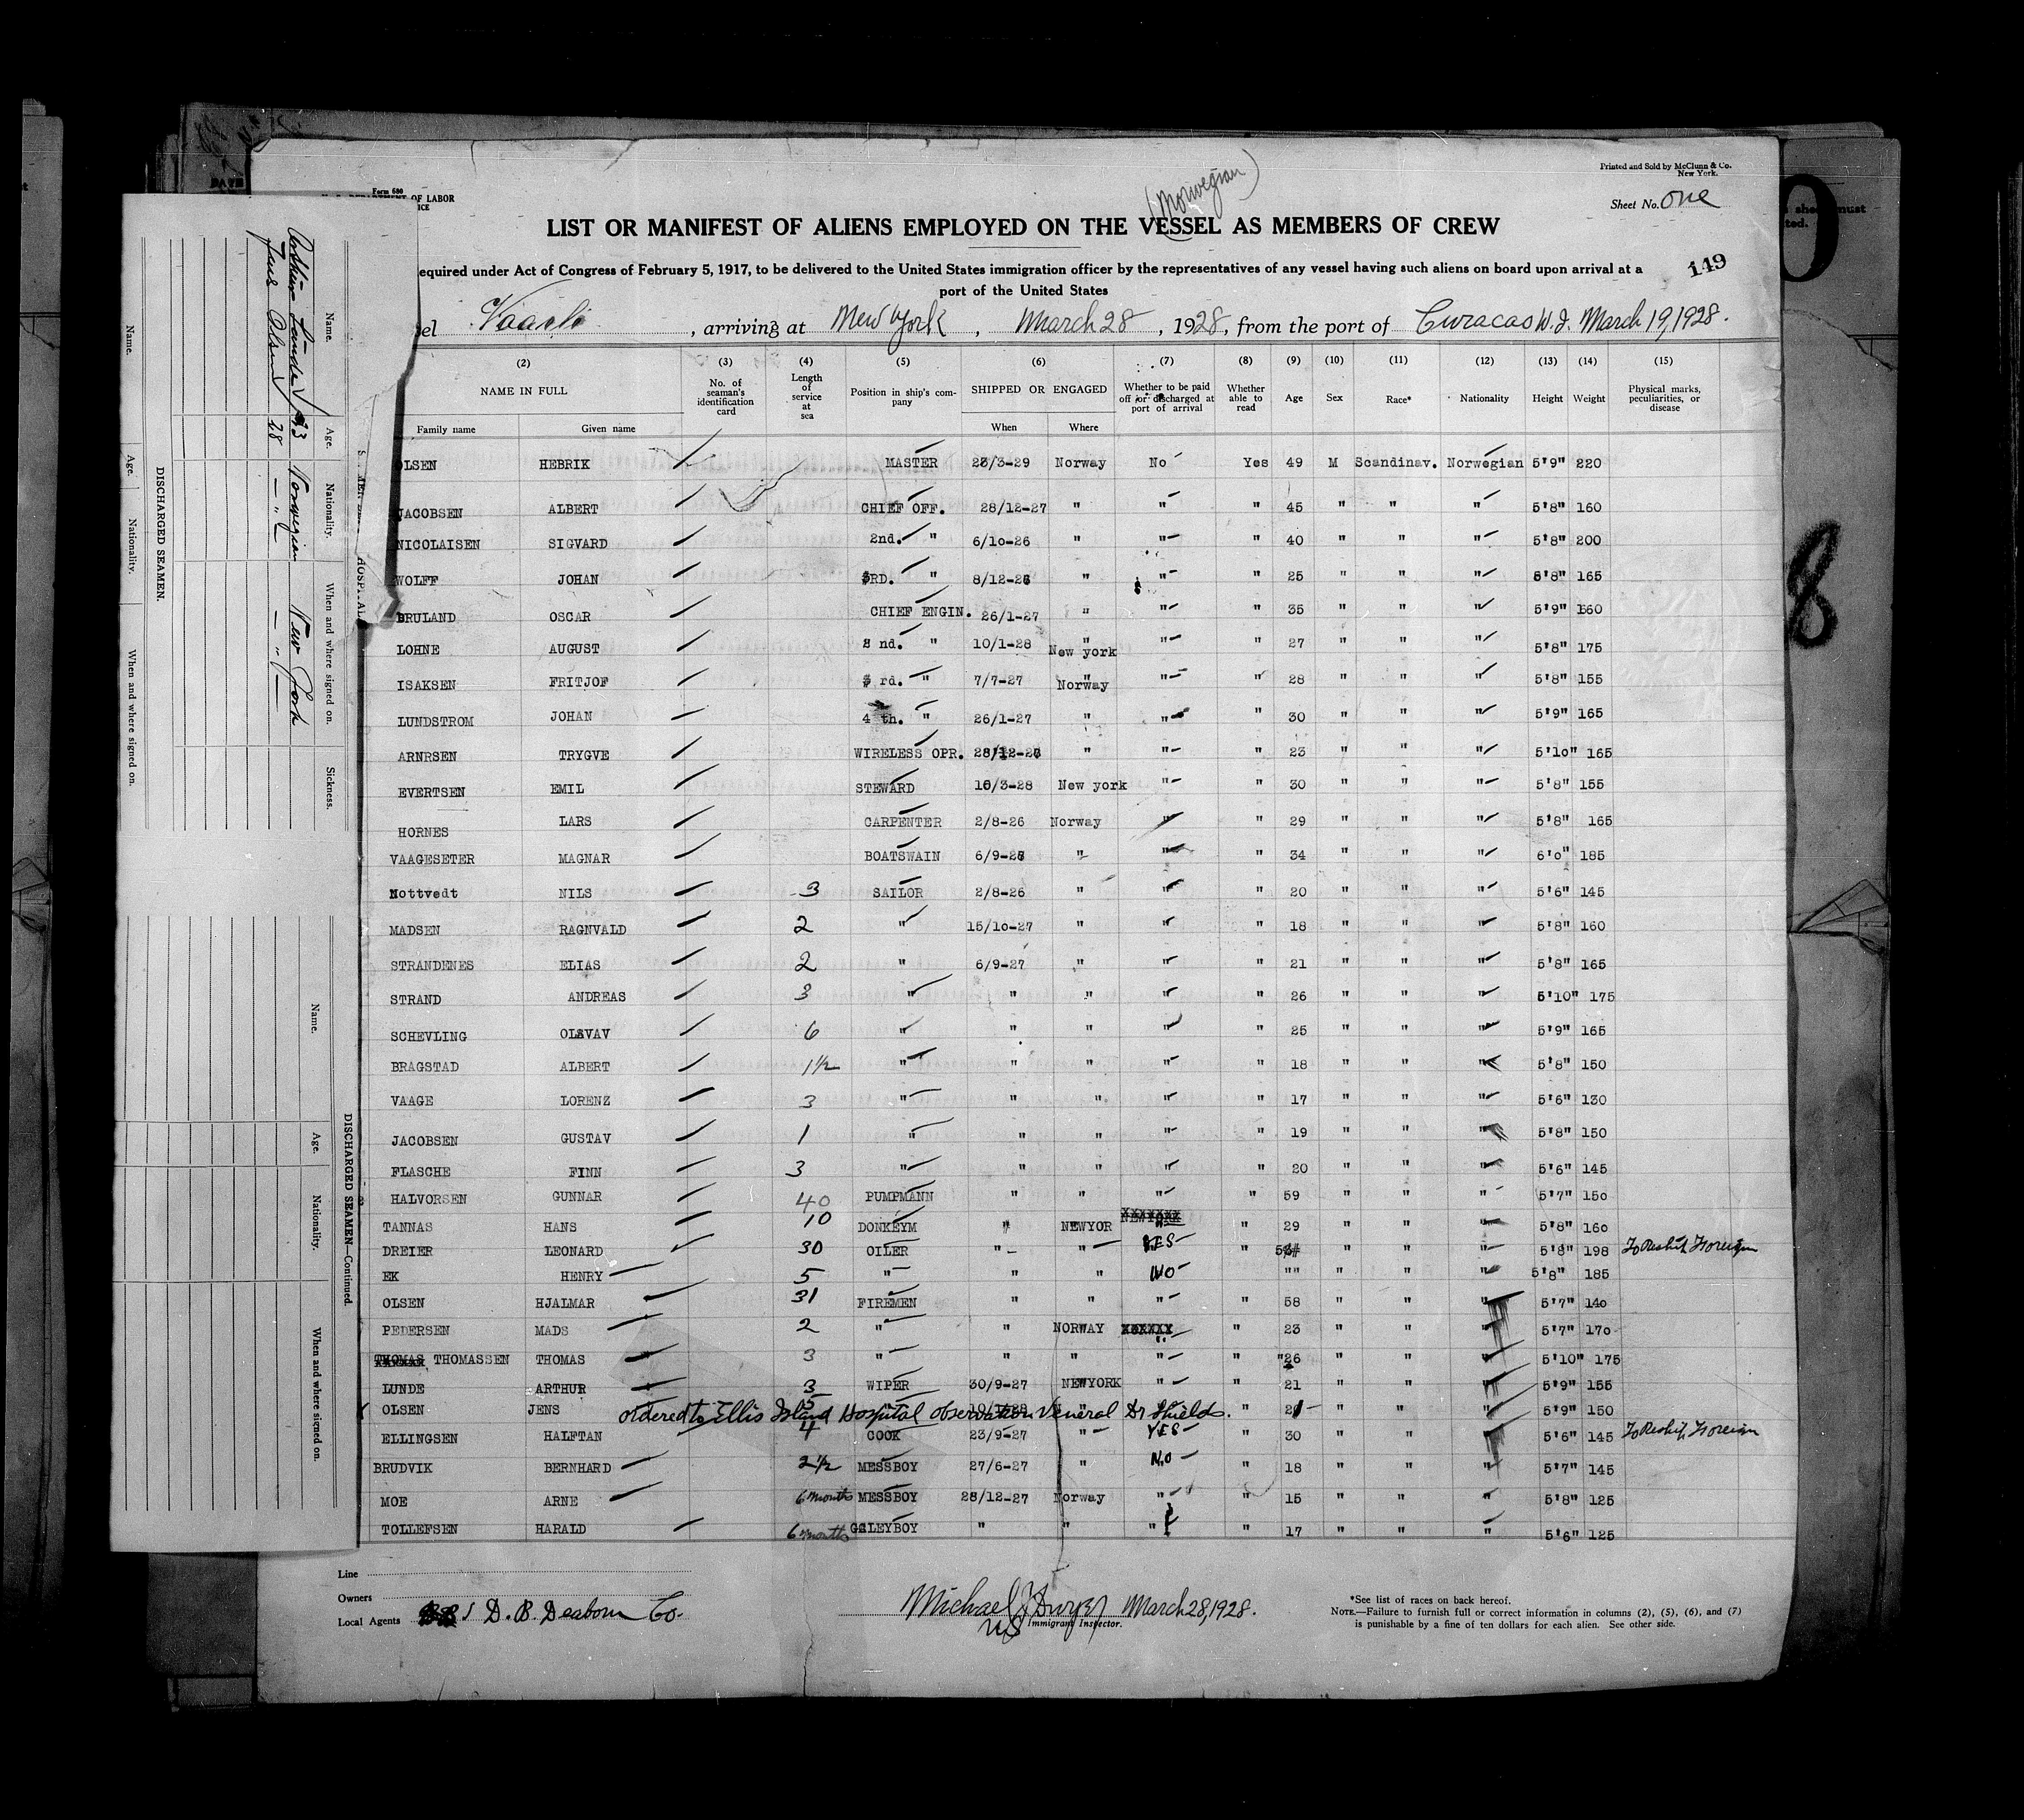 Printed and Sold by McClunn & Co.
New York.
Form 680
OF LABOR
Sheet No. one
(Norwegian)
LIST OR MANIFEST OF ALIENS EMPLOYED ON THE VESSEL AS MEMBERS OF CREW
149
equired under Act of Congress of February 5, 1917, to be delivered to the United States immigration officer by the representatives of any vessel having such aliens on board upon arrival at a
port of the United States
el Vaarli, arriving at New York, March 28, 1928, from the port of Curacao W.I. March 19, 1928.
(2) (3) (4) (5) (6) (7) (8) (9) (10) (11) (12) (13) (14) (15)
NAME IN FULL No. of seaman's identification card Length of service at sea Position in ship's company SHIPPED OR ENGAGED Whether to be paid off or discharged at port of arrival Whether able to read Age Sex Race* Nationality Height Weight Physical marks, peculiarities, or disease
Family name Given name When Where
OLSEN HEBRIK MASTER 28/3-29 Norway No Yes 49 M Scandinav. Norwegian 5'9" 220
JACOBSEN ALBERT CHIEF OFF. 28/12-27 " " " 45 " " " 5'8" 160
NICOLAISEN SIGVARD 2nd. " 6/10-26 " " " 40 " " " 5'8" 200
WOLFF JOHAN 3RD. " 8/12-26 " " " 25 " " " 5'8" 165
BRULAND OSCAR CHIEF ENGIN. 26/1-27 " " " 35 " " " 5'9" 160
LOHNE AUGUST 2 nd. " 10/1-28 New york " " 27 " " " 5'8" 175
ISAKSEN FRITJOF 3 rd. " 7/7-27 Norway " " 28 " " " 5'8" 155
LUNDSTROM JOHAN 4 th. " 26/1-27 " " " 30 " " " 5'9" 165
ARNRSEN TRYGVE WIRELESS OPR. 28/12-26 " " " 23 " " " 5'10" 165
EVERTSEN EMIL STEWARD 16/3-28 New york " " 30 " " " 5'8" 155
HORNES LARS CARPENTER 2/8-26 Norway " " 29 " " " 5'8" 165
VAAGESETER MAGNAR BOATSWAIN 6/9-26 " " " 34 " " " 6'0" 185
Nottvedt NILS 3 SAILOR 2/8-26 " " " 20 " " " 5'6" 145
MADSEN RAGNVALD 2 " 15/10-27 " " " 18 " " " 5'8" 160
STRANDENES ELIAS 2 " 6/9-27 " " " 21 " " " 5'8" 165
STRAND ANDREAS 3 " " " " " 26 " " " 5'10" 175
SCHEVLING OLAVAV 6 " " " " " 25 " " " 5'9" 165
BRAGSTAD ALBERT 1½ " " " " " 18 " " " 5'8" 150
VAAGE LORENZ 3 " " " " " 17 " " " 5'6" 130
JACOBSEN GUSTAV 1 " " " " " 19 " " " 5'8" 150
FLASCHE FINN 3 " " " " " 20 " " " 5'6" 145
HALVORSEN GUNNAR 40 PUMPMANN " " " " 59 " " " 5'7" 150
TANNAS HANS 10 DONKEYM " NEWYOR " " 29 " " " 5'8" 160
DREIER LEONARD 30 OILER " " YES " " " " 5'8" 198 To Reship Foreign
EK HENRY 5 " " " NO " "" " " " 5'8" 185
OLSEN HJALMAR 31 FIREMEN " " " " 58 " " " 5'7" 140
PEDERSEN MADS 2 " " NORWAY " " 23 " " " 5'7" 170
THOMAS THOMASSEN THOMAS 3 " " " " " "26 " " " 5'10" 175
LUNDE ARTHUR 3 WIPER 30/9-27 NEWYORK " " 21 " " " 5'9" 155
OLSEN JENS 5 " " " " 5'9" 150
ordered to Ellis Island Hospital observation Veneral Dr Shields.
ELLINGSEN HALFTAN 4 COOK 23/9-27 " YES " 30 " " " 5'6" 145 To Reship Foreign
BRUDVIK BERNHARD 2½ MESSBOY 27/6-27 " NO " 18 " " " 5'7" 145
MOE ARNE 6 months MESSBOY 28/12-27 Norway " " 15 " " " 5'8" 125
TOLLEFSEN HARALD 6 months GALEYBOY " " " " 17 " " " 5'6" 125
Line
Owners
Local Agents D. B. Dearborn Co.
Michael J Dwyer March 28, 1928.
US Immigrant Inspector.
*See list of races on back hereof.
NOTE.—Failure to furnish full or correct information in columns (2), (5), (6), and (7)
is punishable by a fine of ten dollars for each alien. See other side.
Name. Age. Nationality. When and where signed on. Sickness.
Arthur Lunde 23 Norwegian New York
Jens Olsen 28 -"- -"-
DISCHARGED SEAMEN.
Name. Age. Nationality. When and where signed on.
DISCHARGED SEAMEN—Continued.
Name. Age. Nationality. When and where signed on.